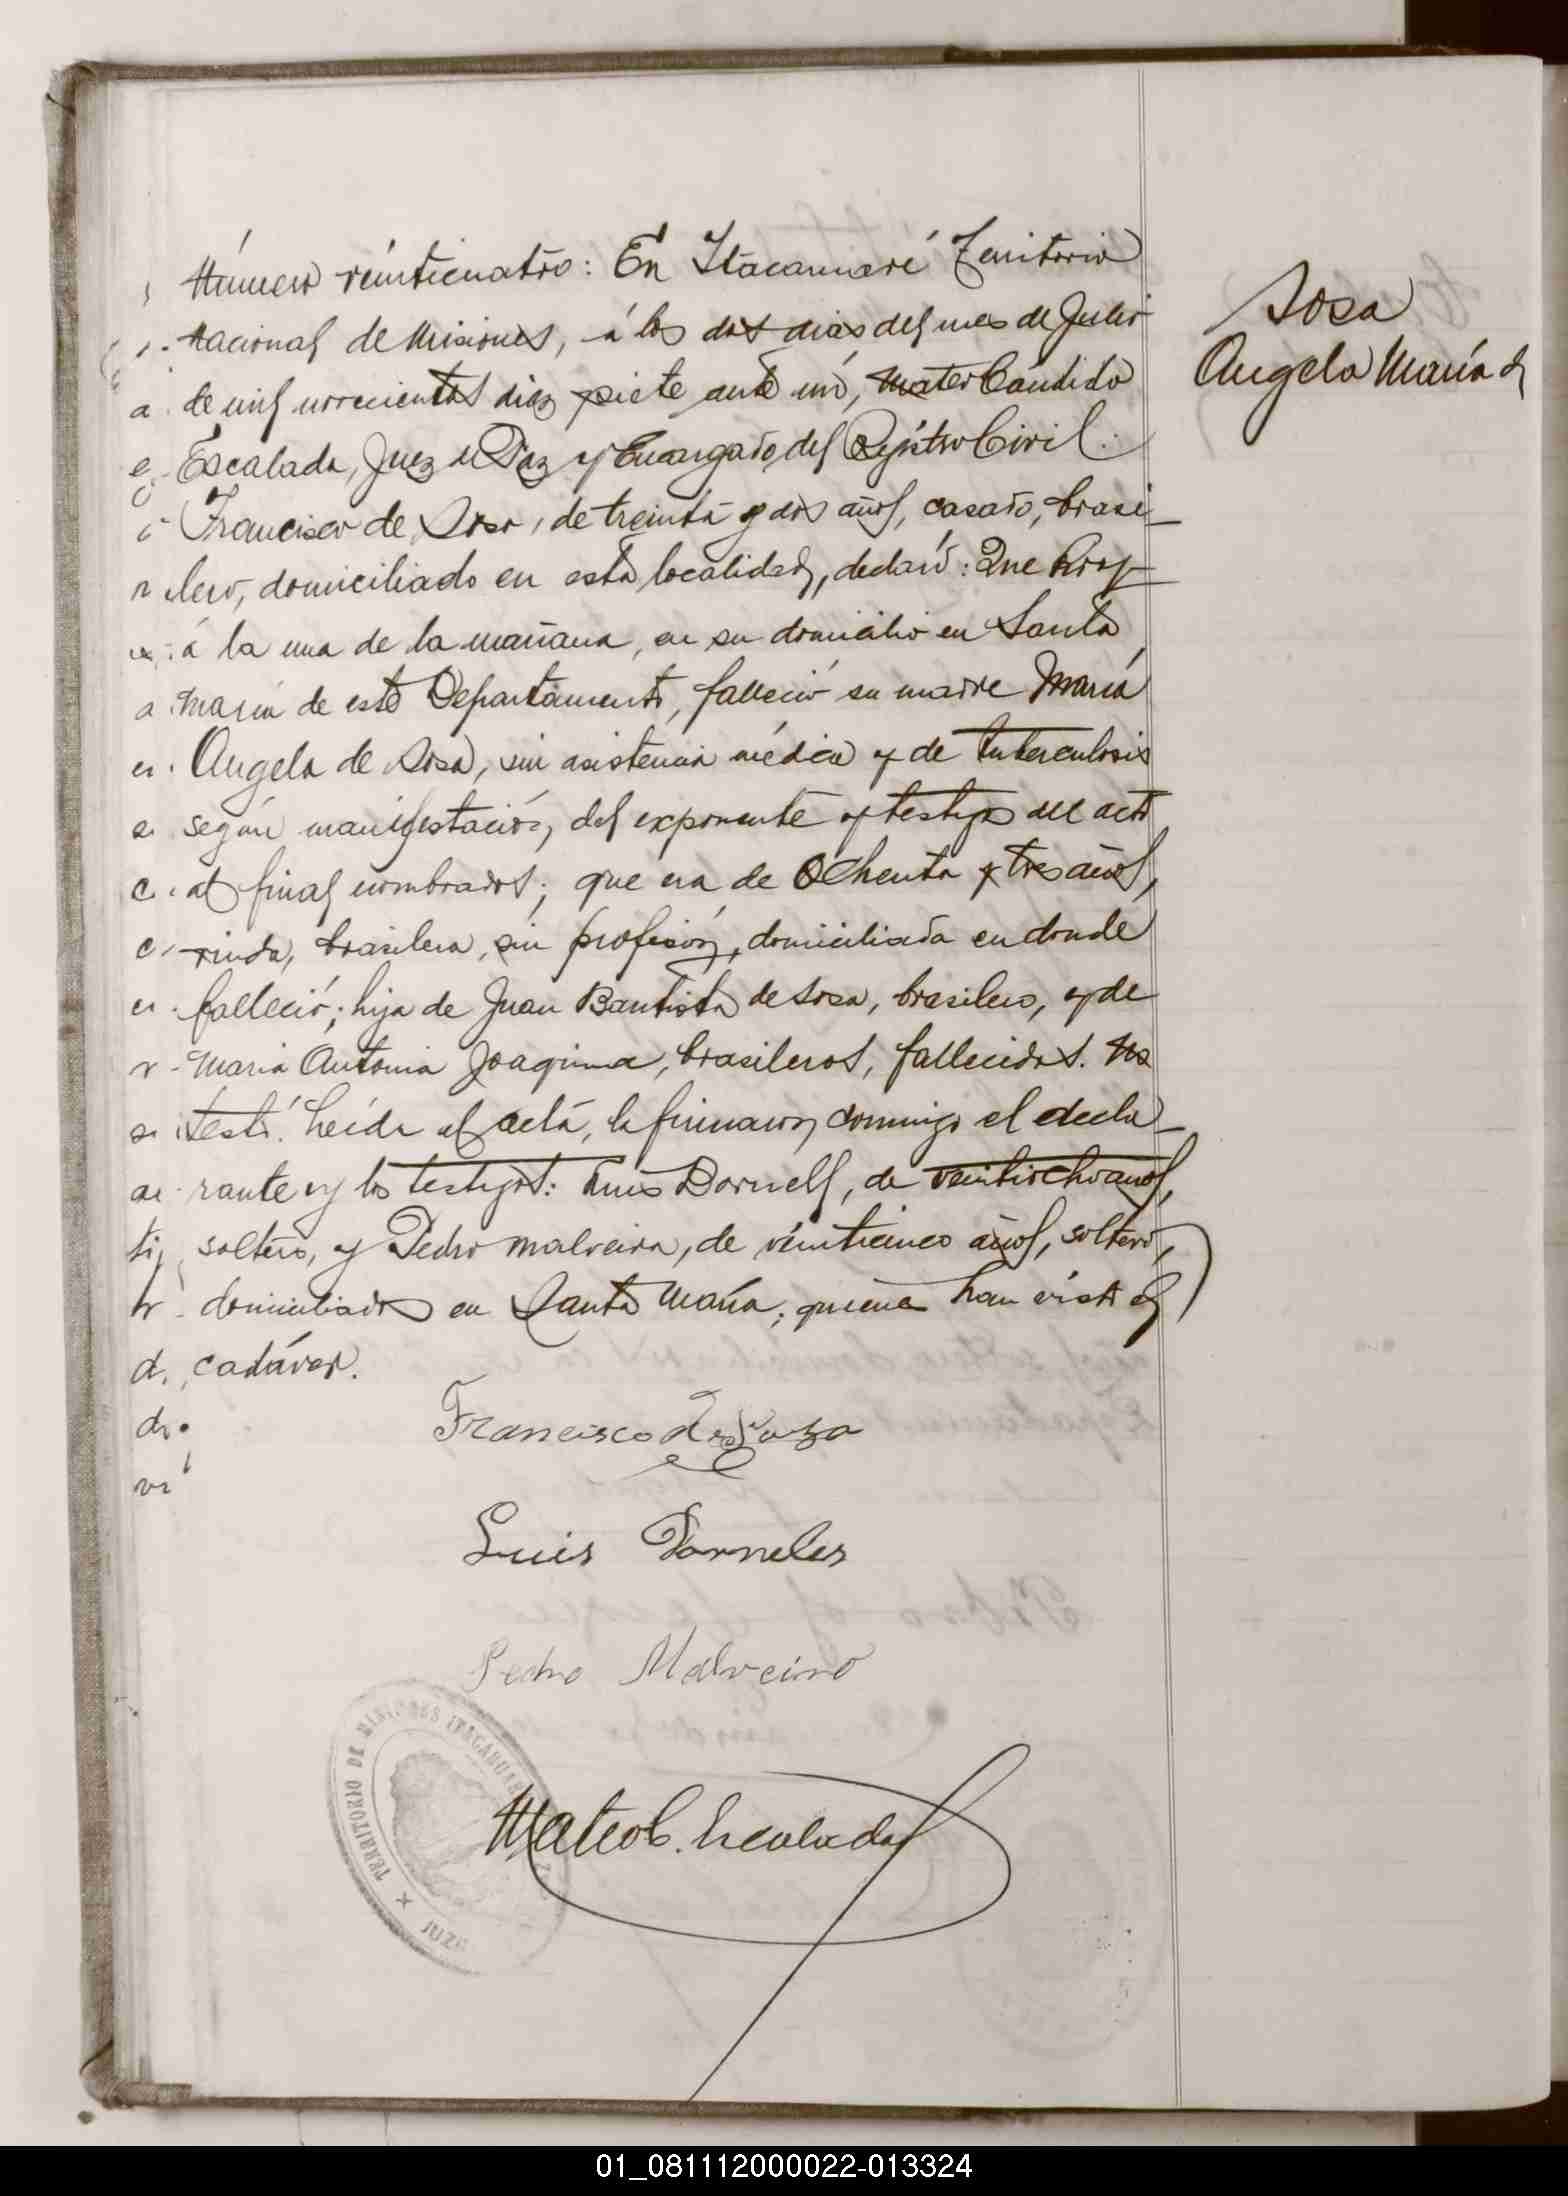 Número veinticuatro: En Itacaruaré Territorio
Nacional de Misiones, á los dos dias del mes de Julio
de mil novecientos diez y siete ante mí, Mateo Cándido
Escalada, Juez de Paz y Encargado del Registro Civil.
Francisco de Sosa, de treinta y dos años, casado, brasi-
lero, domiciliado en esta localidad, declaró: Que hoy
á la una de la mañana, en su domicilio en Santa
María de este Departamento, falleció su madre María
Angela de Sosa, sin asistencia médica y de tuberculosis
según manifestación, del exponente y testigos del acto
al final nombrados; que era de Ochenta y tres años,
viuda, brasilera, sin profesión, domiciliada en donde
falleció; hija de Juan Bautista de Sosa, brasilero, y de
María Antonia Joaquina, brasileros, fallecidos. No
testó. Leída el acta, la firmaron conmigo el decla-
rante y los testigos: Luis Dornell, de veintiocho años,
soltero, y Pedro Malveira, de veinticinco años, soltero,
domiciliados en Santa María; quienes han visto el
cadáver.
Sosa
Angela María d
Francisco de Souza
Luis Dorneles
Pedro Malveira
Mateo C. Escalada
TERRITORIO DE MISIONES ITACARUARE
JUZ
01_081112000022-013324